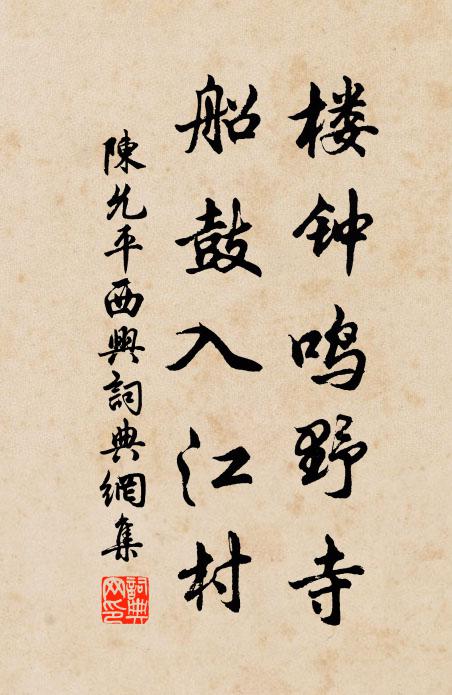 楼钟鸣野寺
船鼓入江村
陳允平西興詞典網集
詞典网印